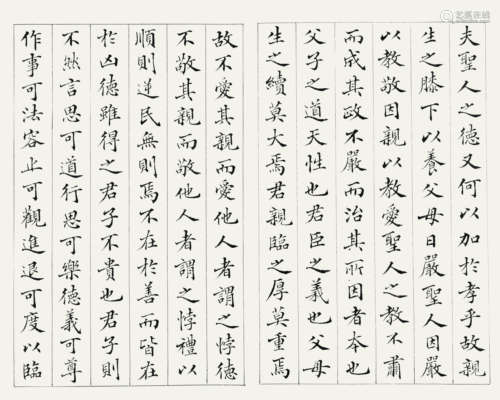 夫聖人之德又何以加於孝乎故親
生之膝下以養父母日嚴聖人因嚴
以教敬因親以教愛聖人之教不肅
而成其政不嚴而治其所因者本也
父子之道天性也君臣之義也父母
生之續莫大焉君親臨之厚莫重焉
故不愛其親而愛他人者謂之悖德
不敬其親而敬他人者謂之悖禮以
順則逆民無則焉不在於善而皆在
於凶德雖得之君子不貴也君子則
不然言思可道行思可樂德義可尊
作事可法容止可觀進退可度以臨